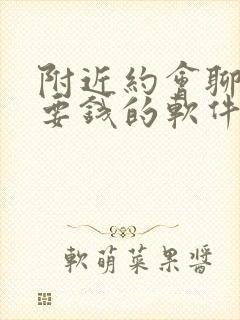 附近約會聊
要錢的軟件
軟萌菜果醬